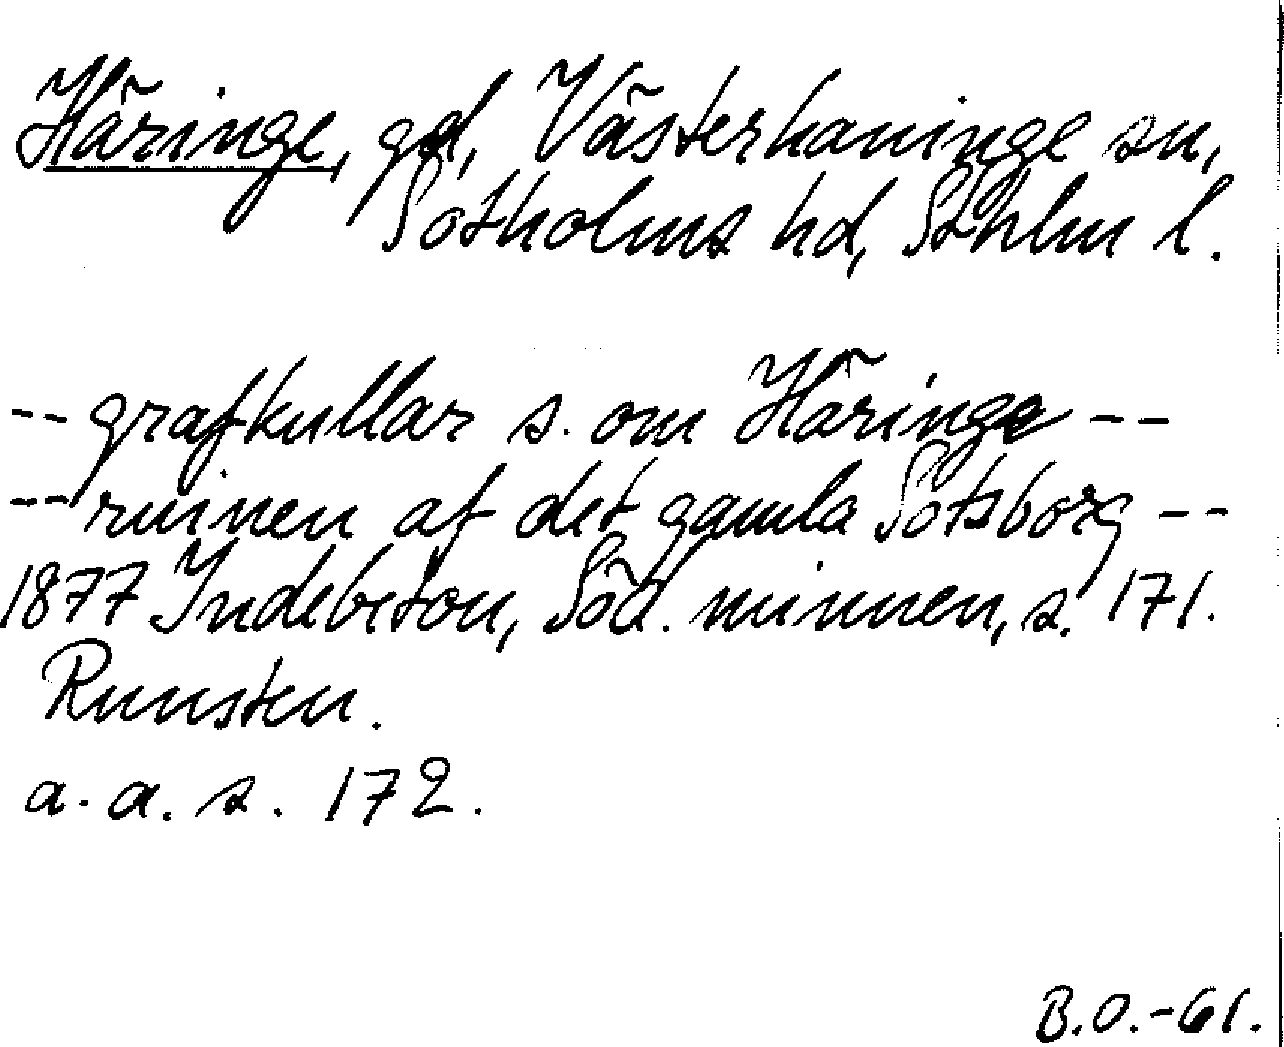 Häringe, gd, Västerhaninge sn,
Sotholms hd, Sthlm l.
-- grafkullar s. om Häringe --
-- ruinen af det gamla Sotsborg --
1877 Indebetou, Söd. minnen, s. 171.
Runsten.
a. a. s. 172.
B.O.-61.